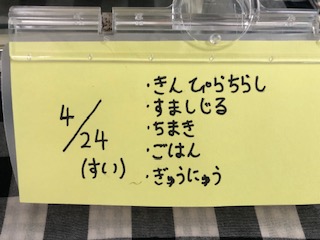 4/24
(すい)
・きんぴらちらし
・すましじる
・ちまき
・ごはん
・ぎゅうにゅう